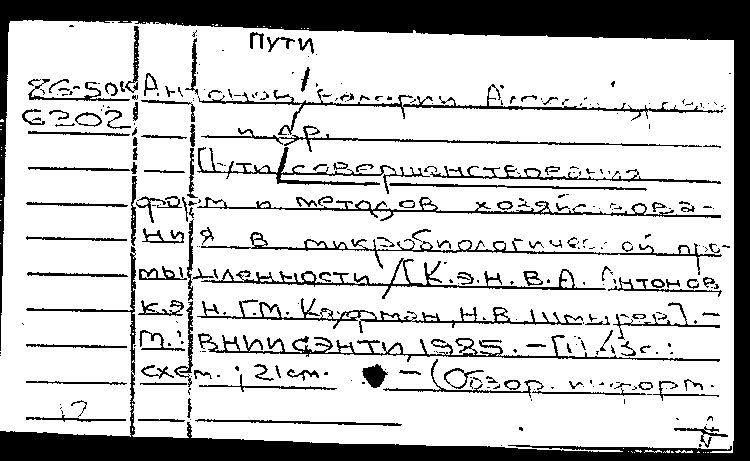 Пути
86-50к Антонов Валерий Александрович
6202 и др.
Пути совершенствования
форм и методов хозяйствова-
ния в микробиологической про-
мышленности / [К.э.н. В.А. Антонов,
к.э.н. Г.М. Кауфман, Н.В. Шмырев]. –
М.: ВНИИСЭНТИ, 1985. – [1], 43 с.:
схем.; 21 см. – (Обзор. информ.
12